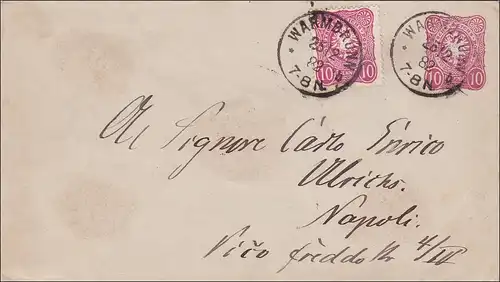 * WARMBRUNN *
82
7-8N.
10 10
WA
UNN
82
7-8N.
10 10
Al Signore Carlo Enrico
Ulrichs.
Napoli.
Vičo freddo Nr 4/III